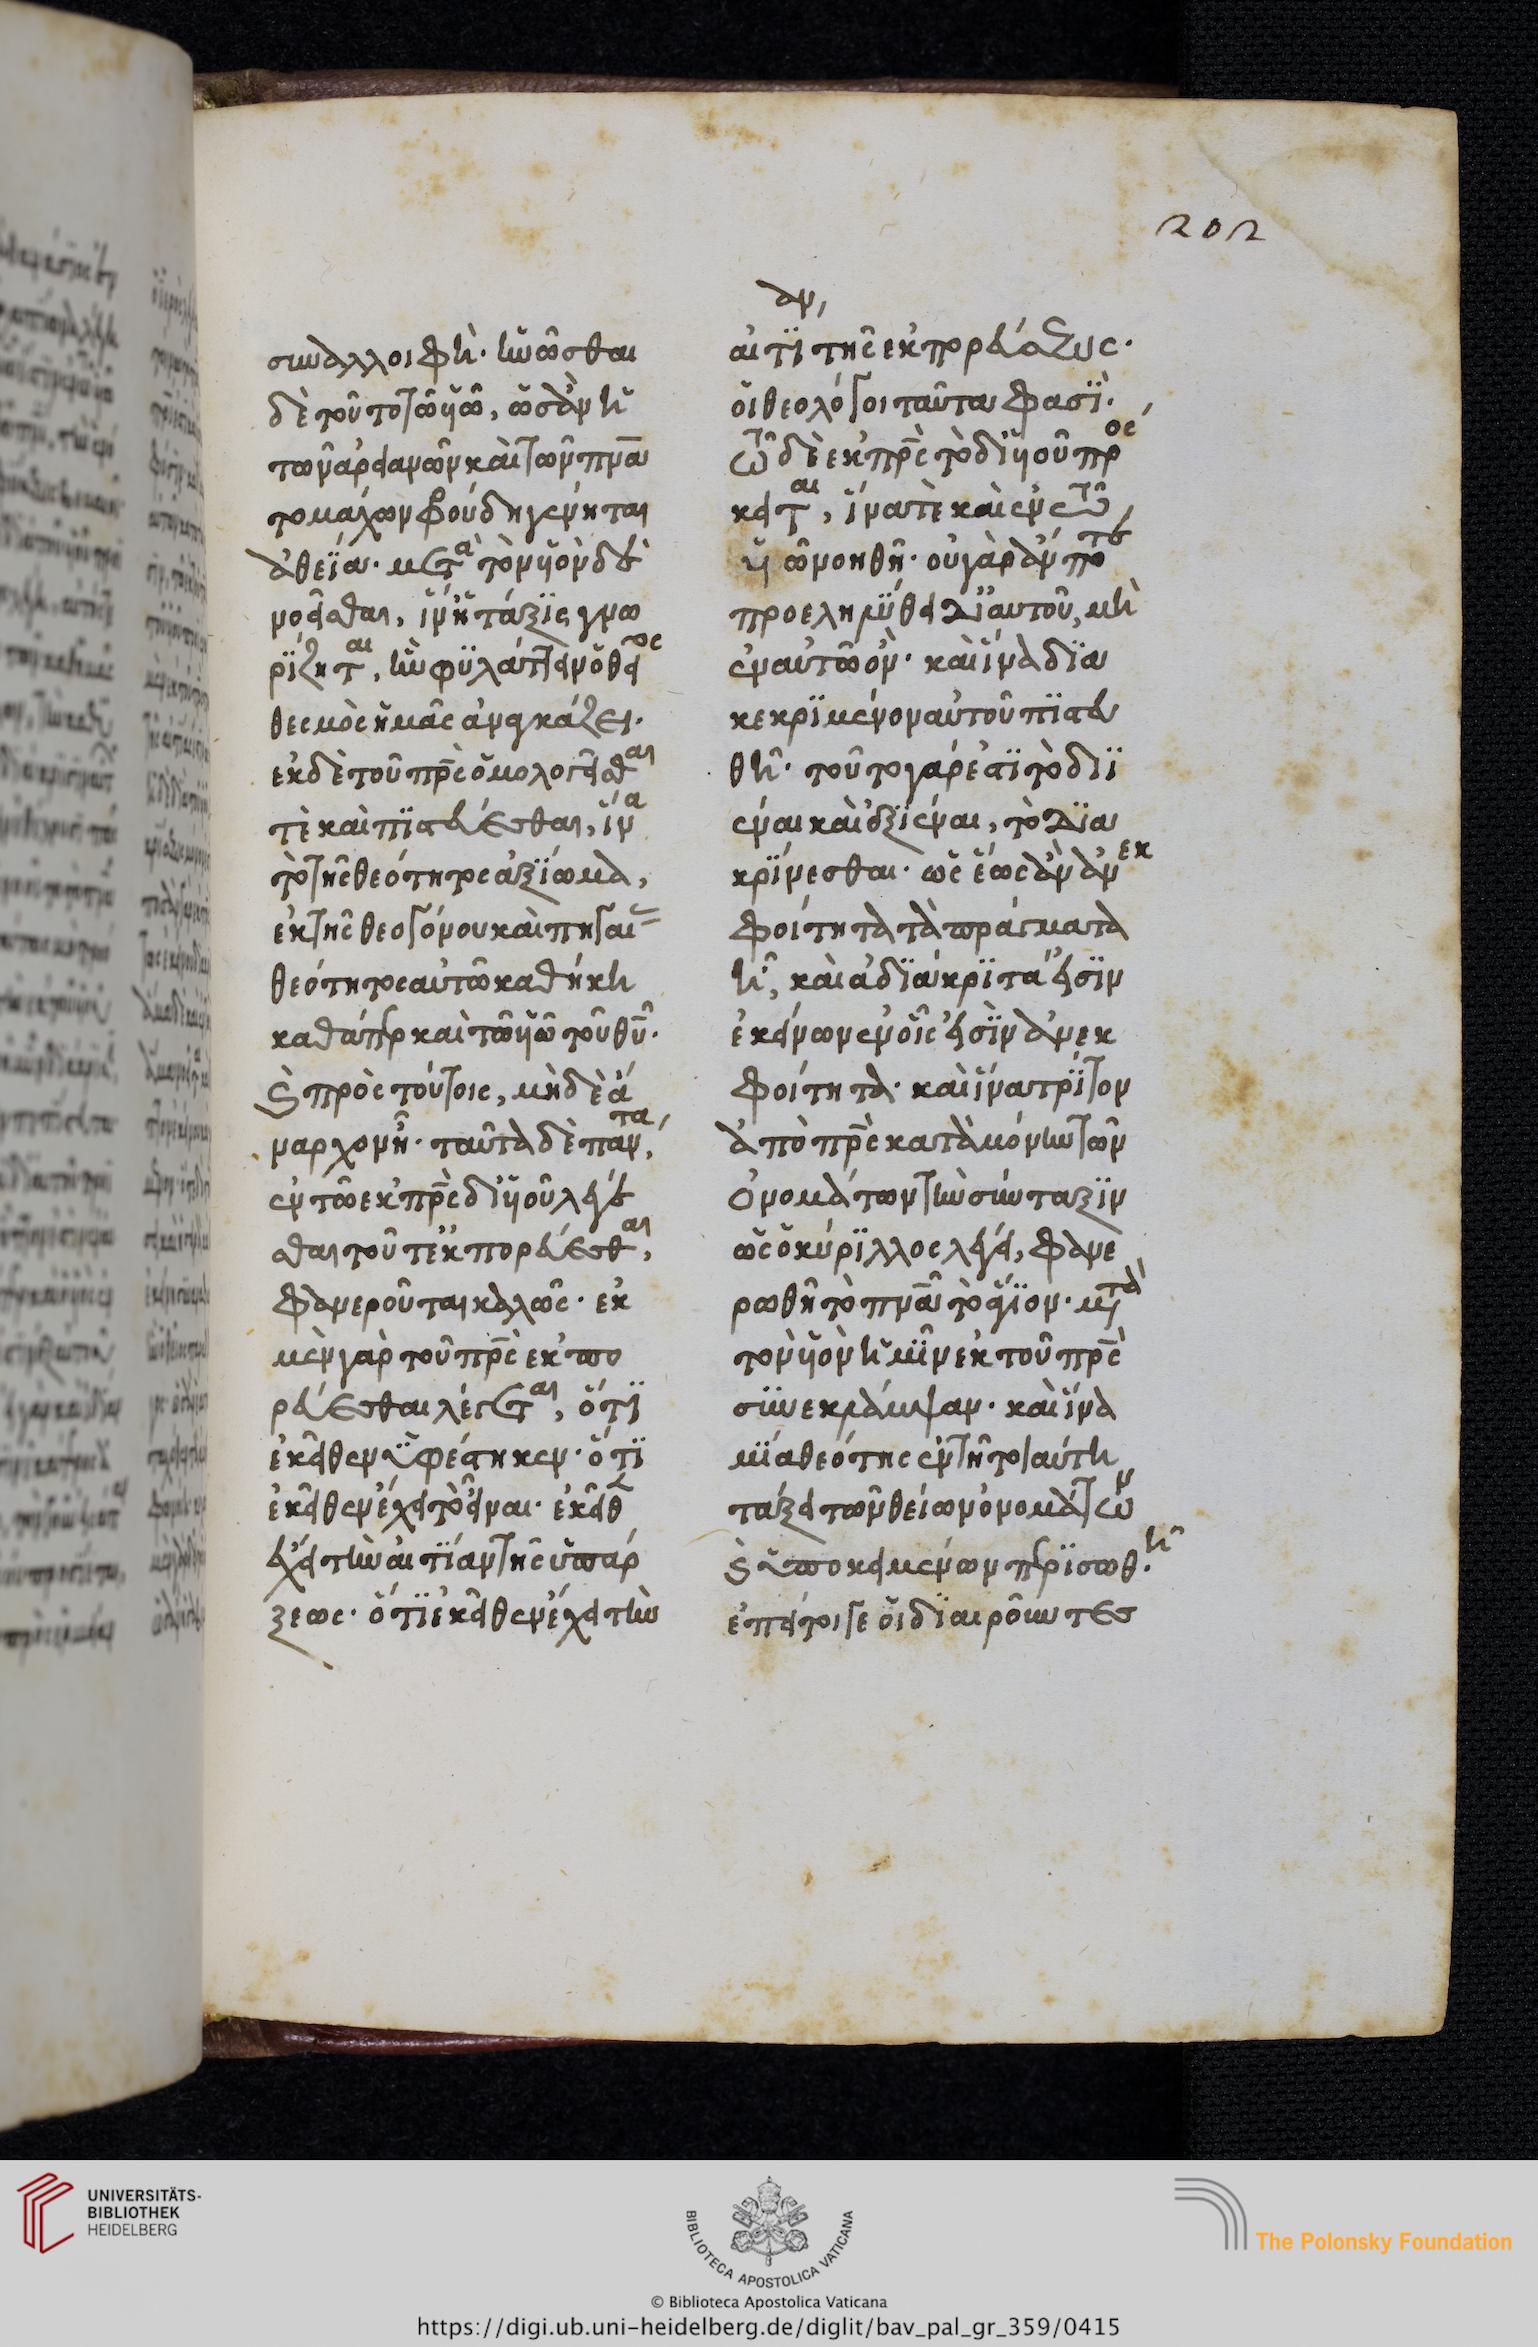 202
συναλλοιφὴ· ἡνῶσθαι
δὲ τοῦτο τῷ υἱῷ, ὡς ἂν ἡ
τῶν ἀρειανῶν καὶ τῶν πνα
τομάχων φρούδη γένηται
ἀθεΐα· μετὰ τὸν υἱὸν δὲ
νοεῖσθαι, ἵν' ἡ τάξις γνω
ρίζηται, ἣν φυλάττειν ὁ θεῖος
θεσμὸς ἡμᾶς ἀναγκάζει·
ἐκ δὲ τοῦ πρς ὁμολογεῖσθαι
τὲ καὶ πιστεύεσθαι, ἵνα
τὸ τῆς θεότητος ἀξίωμα,
ἐκ τῆς θεογόνου καὶ πηγαίας
θεότητος αὐτῷ καθήκη
καθάπερ καὶ τῷ υἱῷ τοῦ θυ·
καὶ πρὸς τούτοις, μὴ δὲ ἀ
ναρχον ᾖ· ταῦτα δὲ πάντα,
ἐν τῷ ἐκ πρς δι' υἱοῦ λέγε
σθαι τοῦτ' ἐκπορεύεσθαι,
φανεροῦται καλῶς· ἐκ
μὲν γὰρ τοῦ πρς ἐκπο
ρεύεσθαι λέγεται, ὅτι
ἐκεῖθεν ὑφέστηκεν· ὅτι
ἐκεῖθεν ἔχει τὸ εἶναι· ἐκεῖθεν
ἔχει τὴν αἰτίαν τῆς ὑπάρ
ξεως· ὅτι ἐκεῖθεν ἔχει τὴν
αἰτίαν τῆς ἐκπορεύσεως·
οἱ θεολόγοι ταῦτα φασὶ·
τῷ δὲ ἐκ πρς τὸ δι' υἱοῦ πρός
κειται, ἵνα τὲ καὶ ἐν τῷ
υἱῷ νοηθῇ· οὐ γὰρ ἄν ποτε
προεληλύθει δι' αὐτοῦ, μὴ
ἐν αὐτῷ ὄν· καὶ ἵνα δια
κεκριμένον αὐτοῦ πιστευ
θῇ· τοῦτο γάρ ἐστι τὸ διϊ
έναι καὶ ἐξιέναι, τὸ δια
κρίνεσθαι· ὡς ἕως ἂν ἀνεκ
φοίτητα τὰ πράγματα
ᾖ, καὶ ἀδιάκριτα εἰσὶν
ἐκείνων ἐν οἷς εἰσὶν ἀνεκ
φοίτητα· καὶ ἵνα τρίτον
ἀπὸ πρς κατὰ μόνην τῶν
ὀνομάτων τὴν σύνταξιν
ὡς ὁ κύριλλος λέγει, φανε
ρωθῇ τὸ πνα τὸ ἅγιον· μετὰ
τὸν υἱὸν ἡμῖν ἐκ τοῦ πρς
συνεκλάμψαν· καὶ ἵνα
μία θεότης ἐν τῇ τοιαύτῃ
τάξει τῶν θείων ὀνομάτων
καὶ ὑποκειμένων περισωθῇ·
ἐπείτοιγε οἱ διαιροῦντες
UNIVERSITÄTS-
BIBLIOTHEK
HEIDELBERG
BIBLIOTECA APOSTOLICA VATICANA
The Polonsky Foundation
© Biblioteca Apostolica Vaticana
https://digi.ub.uni-heidelberg.de/diglit/bav_pal_gr_359/0415